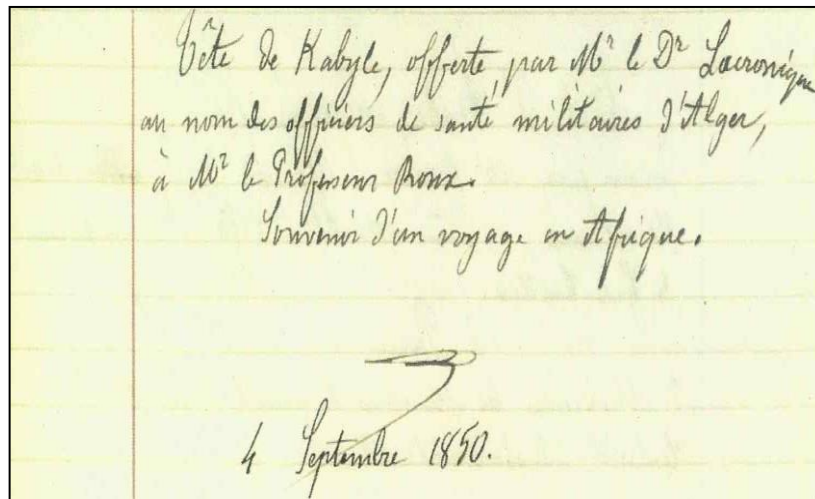 Tête de Kabyle, offerte par Mr le Dr Lacronique
au nom des officiers de santé militaires d'Alger,
à Mr le Professeur Roux.
Souvenir d'un voyage en Afrique.
4 Septembre 1850.